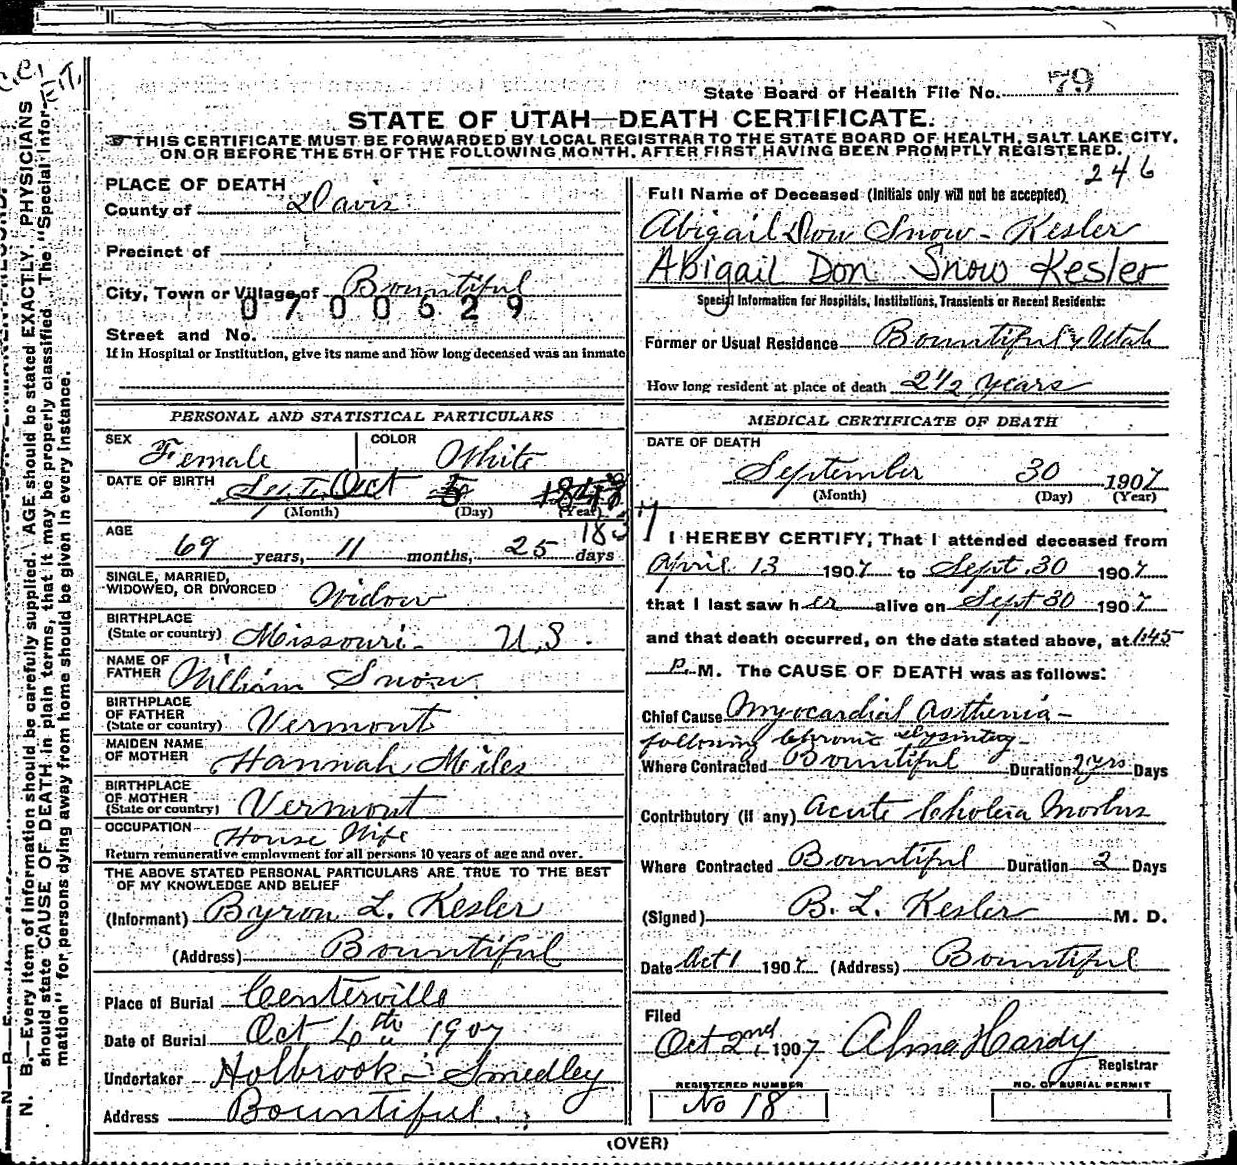 C.C. F.T.
State Board of Health File No. 79
STATE OF UTAH—DEATH CERTIFICATE.
THIS CERTIFICATE MUST BE FORWARDED BY LOCAL REGISTRAR TO THE STATE BOARD OF HEALTH, SALT LAKE CITY,
ON OR BEFORE THE 5TH OF THE FOLLOWING MONTH, AFTER FIRST HAVING BEEN PROMPTLY REGISTERED.
246
PLACE OF DEATH
County of Davis
Precinct of
City, Town or Village of Bountiful
0700629
Street and No.
If in Hospital or Institution, give its name and how long deceased was an inmate
PERSONAL AND STATISTICAL PARTICULARS
SEX Female COLOR White
DATE OF BIRTH Sept. Oct 5
(Month) (Day) (Year)
1837
AGE 69 years, 11 months, 25 days
SINGLE, MARRIED,
WIDOWED, OR DIVORCED Widow
BIRTHPLACE
(State or country) Missouri - U.S.
NAME OF
FATHER William Snow
BIRTHPLACE
OF FATHER
(State or country) Vermont
MAIDEN NAME
OF MOTHER Hannah Miles
BIRTHPLACE
OF MOTHER
(State or country) Vermont
OCCUPATION House Wife
Return remunerative employment for all persons 10 years of age and over.
THE ABOVE STATED PERSONAL PARTICULARS ARE TRUE TO THE BEST
OF MY KNOWLEDGE AND BELIEF
(Informant) Byron L. Kesler
(Address) Bountiful
Place of Burial Centerville
Date of Burial Oct 4th 1907
Undertaker Holbrook - Smedley
Address Bountiful.
Full Name of Deceased (Initials only will not be accepted)
Abigail Don Snow - Kesler
Abigail Don Snow Kesler
Special Information for Hospitals, Institutions, Transients or Recent Residents:
Former or Usual Residence Bountiful, Utah
How long resident at place of death 2 1/2 years
MEDICAL CERTIFICATE OF DEATH
DATE OF DEATH
September 30 1907
(Month) (Day) (Year)
I HEREBY CERTIFY, That I attended deceased from
April 13 1907 to Sept. 30 1907
that I last saw her alive on Sept 30 1907
and that death occurred, on the date stated above, at 1:45
P. M. The CAUSE OF DEATH was as follows:
Chief Cause Myocardial Asthenia -
following Chronic Dysintery -
Where Contracted Bountiful Duration 2 yrs Days
Contributory (if any) Acute Cholera Morbus
Where Contracted Bountiful Duration 2 Days
(Signed) B. L. Kesler M. D.
Date Oct 1 1907 (Address) Bountiful
Filed
Oct 2nd, 1907 Alma Hardy
Registrar
REGISTERED NUMBER
No 18
NO. OF BURIAL PERMIT
(OVER)
N. B.—Every item of information should be carefully supplied. AGE should be stated EXACTLY. PHYSICIANS
should state CAUSE OF DEATH in plain terms, that it may be properly classified. The "Special Infor-
mation" for persons dying away from home should be given in every instance.